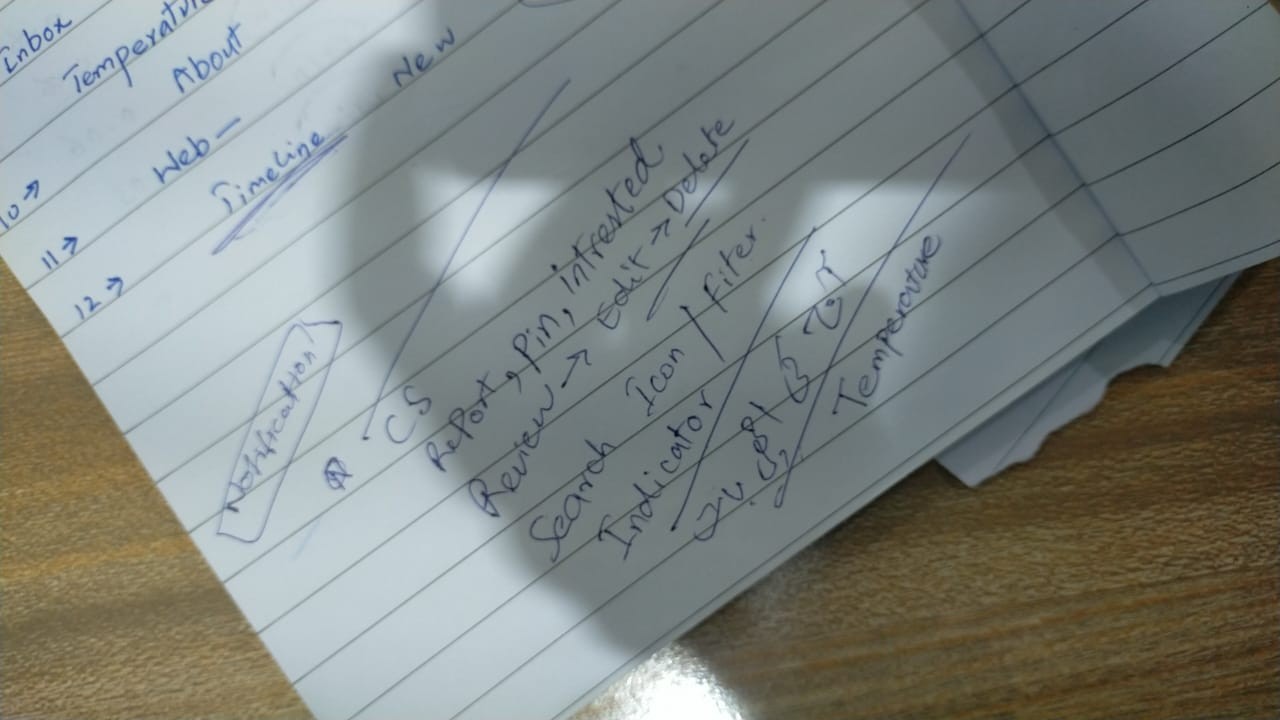 Inbox
Temperature
About
10→ Web - New
11→ Timeline
12→
Notification
CS
Report, Pin, Intrested
Review → Edit → Delete
Search Icon / Filter.
Indicator
Temperature